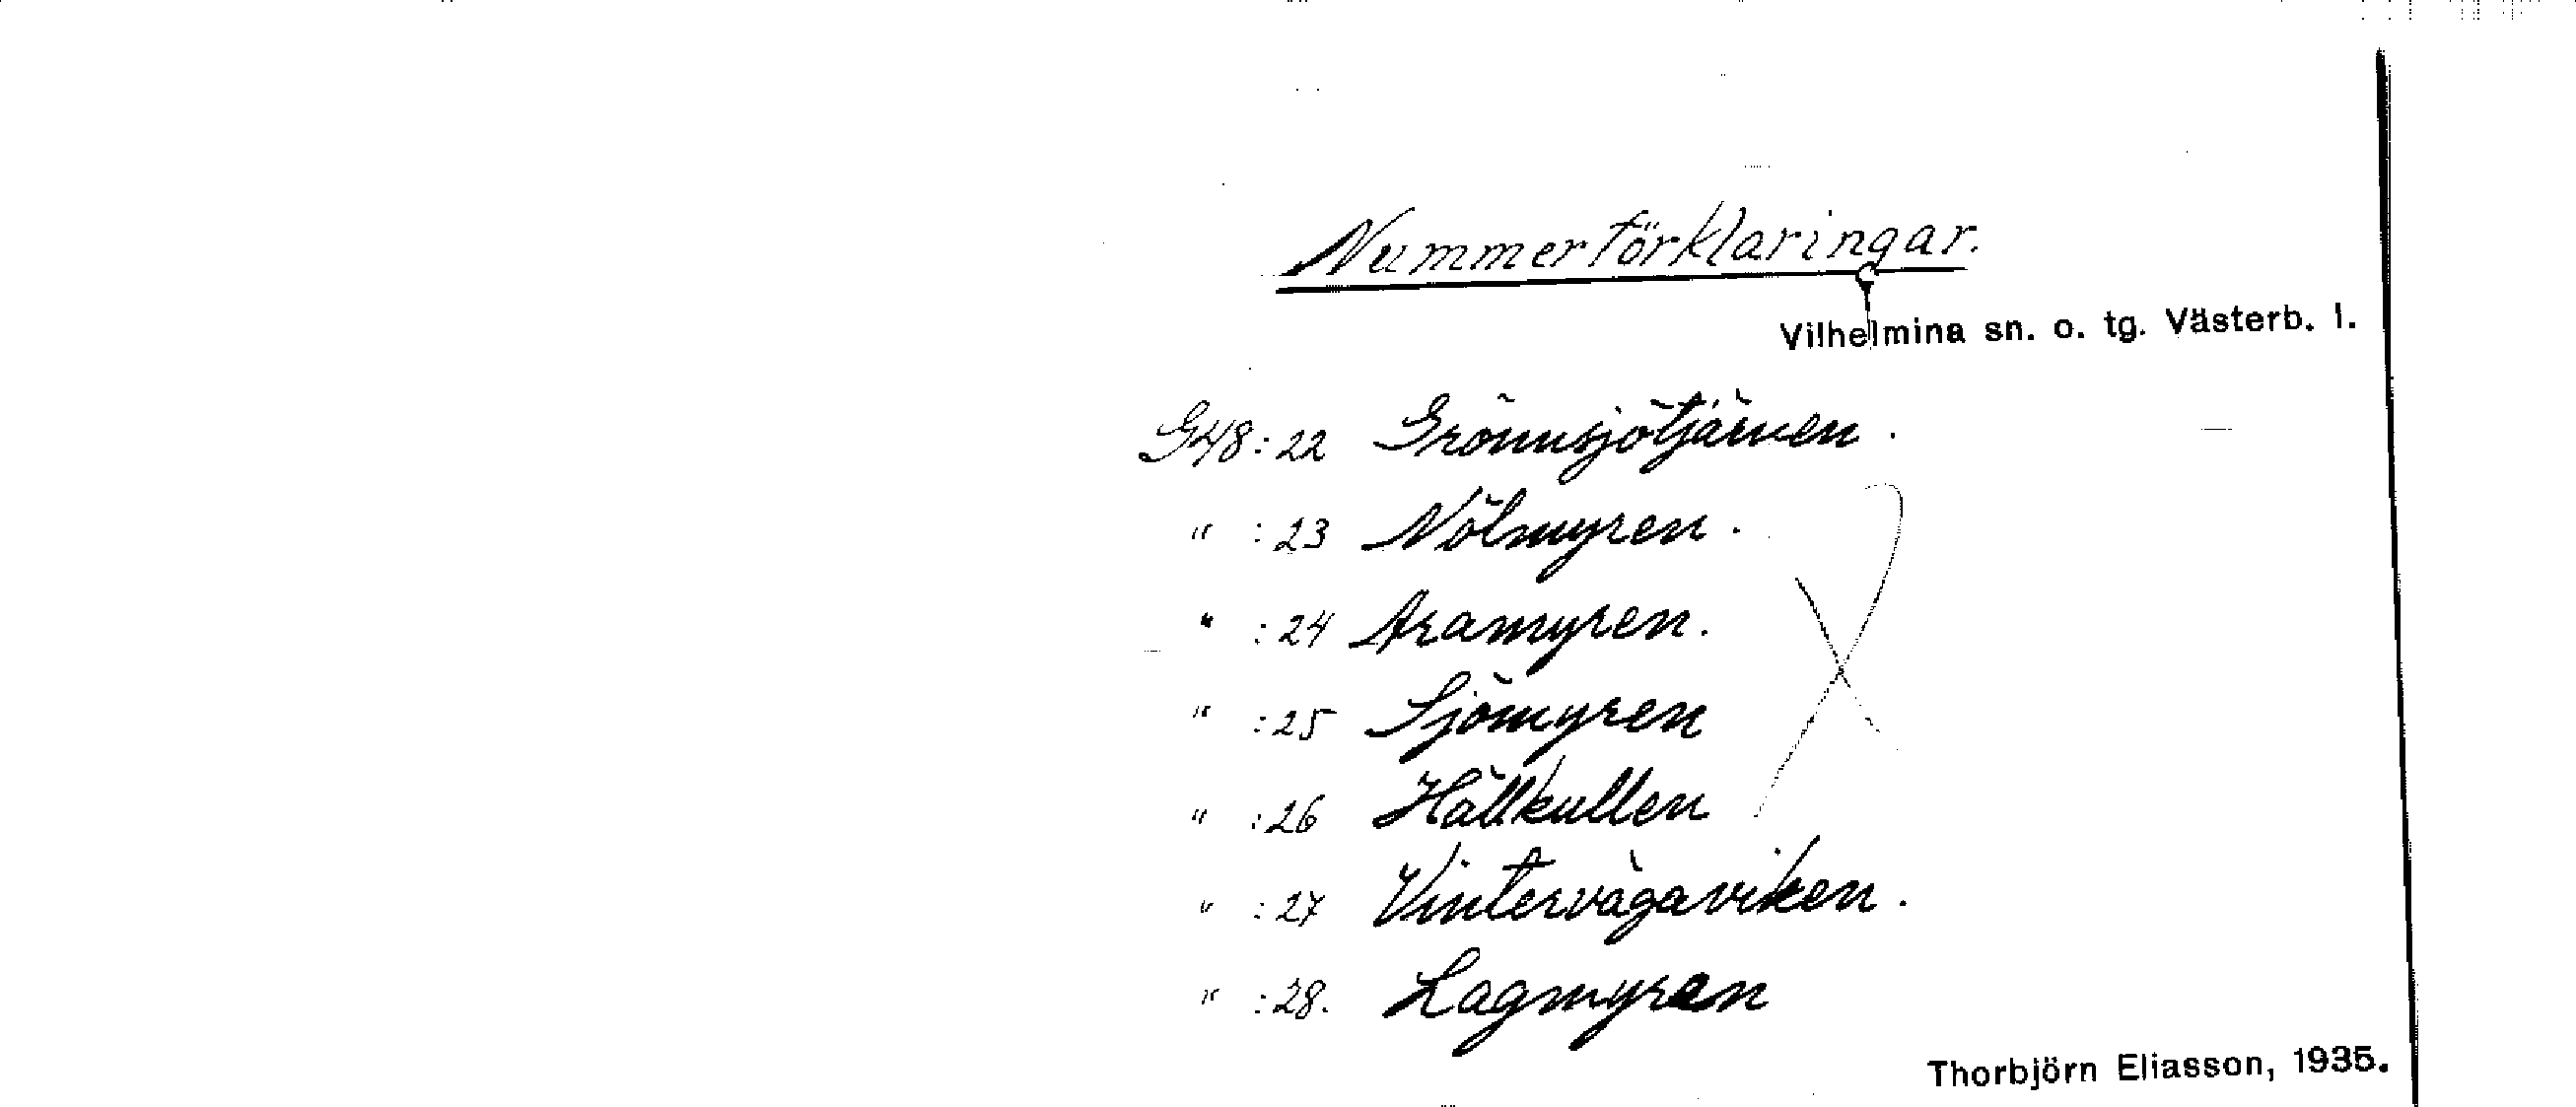 Nummerförklaringar.
Vilhelmina sn. o. tg. Västerb. l.
G48:22 Grönnsjötjärnen.
" :23 Nölmyren.
" :24 Aramyren.
" :25 Sjömyren
" :26 Hällkullen
" :27 Vintervågaviken.
" :28. Lagmyren
Thorbjörn Eliasson, 1935.